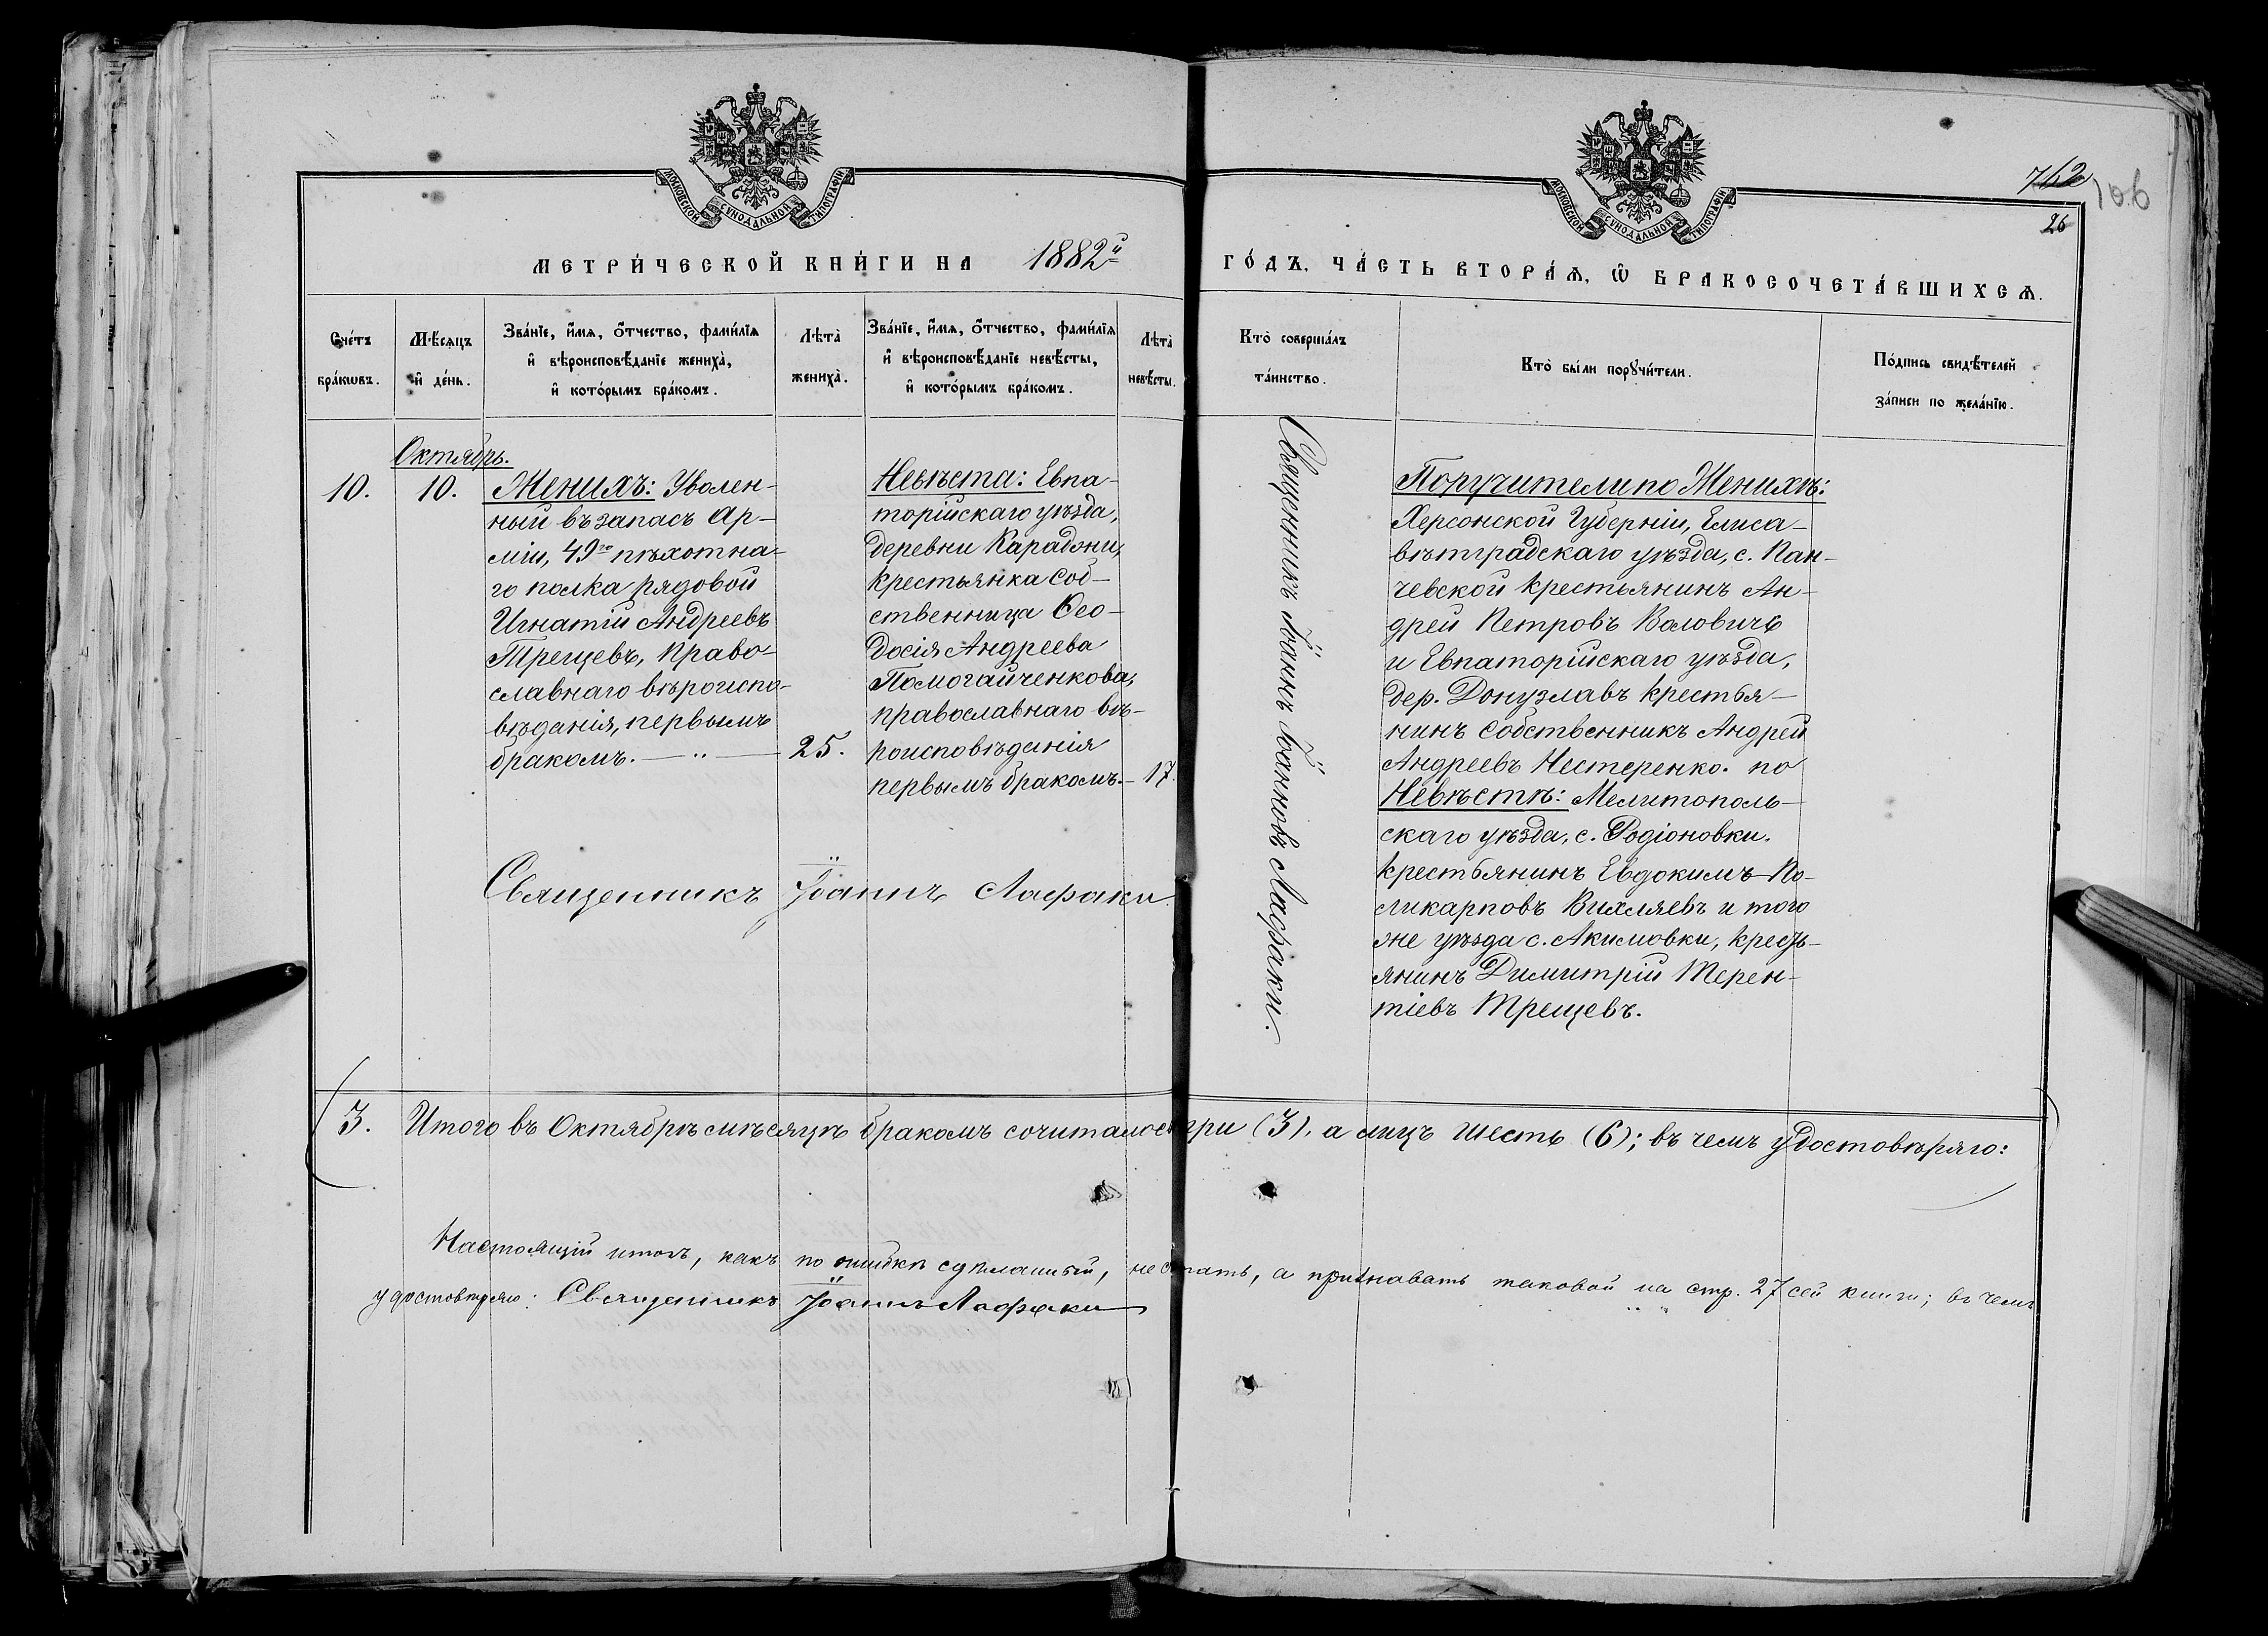 МОСКОВСКОЙ СѴНОДАЛЬНОЙ ТИПОГРАФІИ
МОСКОВСКОЙ СѴНОДАЛЬНОЙ ТИПОГРАФІИ
762
106
26
МЕТРИ́ЧЕСКОЙ КНИ́ГИ НА 1882й
ГО́ДЪ, ЧА́СТЬ ВТОРА́Ѧ, Ѡ҆ БРАКОСОЧЕТА́ВШИХСѦ.
Сче́тъ
бра́кѡвъ.
Мѣ́сѧцъ
и҆ де́нь.
Зва́нїе, и҆́мѧ, ѻ҆́тчество, фами́лїѧ
и҆ вѣроисповѣ́данїе жениха̀,
и҆ кото́рымъ бра́комъ.
Лѣта̀
жениха̀.
Зва́нїе, и҆́мѧ, ѻ҆́тчество, фами́лїѧ
и҆ вѣроисповѣ́данїе невѣ́сты,
и҆ кото́рымъ бра́комъ.
Лѣта̀
невѣ́сты.
Кто̀ соверша́лъ
та́инство.
Кто̀ бы́ли порꙋчи́тели.
По́дпись свидѣ́телей
за́писи по жела́нїю.
Октябрь.
10.
10.
Женихъ: Уволен-
ный въ запасъ Ар-
міи, 49го пѣхотна-
го полка рядовой
Игнатій Андреевъ
Трещевъ, Право-
славнаго вѣроиспо-
вѣданія, первымъ
бракомъ. — „ —
25.
Невѣста: Евпа-
торійскаго уѣзда,
деревни Караджи,
крестьянка Соб-
ственница Ѳео-
досія Андреева
Помогайченкова,
православнаго вѣ-
роисповѣданія
первымъ бракомъ.-
17.
Священникъ Іоаннъ Іоанновъ Лафаки.
Поручители по Женихѣ:
Херсонской Губерніи, Елиса-
вѣтградскаго уѣзда, с. Пан-
чевской крестьянинъ Ан-
дрей Петровъ Воловичъ
и Евпаторійскаго уѣзда,
дер. Донузлавъ крестья-
нинъ Собственникъ Андрей
Андреевъ Нестеренко. по
Невѣстѣ: Мелитополь-
скаго уѣзда, с. Родіоновки.
крестьянинъ Евдокимъ По-
ликарповъ Вихляевъ и того
же уѣзда с. Акимовки, кресть-
янинъ Димитрій Терен-
тіевъ Трещевъ.
Священникъ Іоаннъ Лафаки
3. Итого въ Октябрѣ мѣсяцѣ бракомъ сочиталось три (3), а лицъ шесть (6); въ чемъ удостовѣряю:
Настоящій итогъ, какъ по ошибкѣ сдѣланный, не считать, а признавать таковой на стр. 27 сей книги; въ чемъ
удостовѣряю: Священникъ Іоаннъ Лафаки